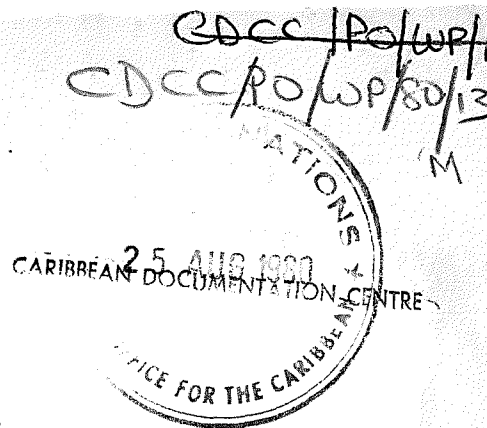 CDCC/PO/WP/
CDCC/PO/WP/80/13
M
NATIONS
25 AUG 1980
CARIBBEAN DOCUMENTATION CENTRE
OFFICE FOR THE CARIBBEAN